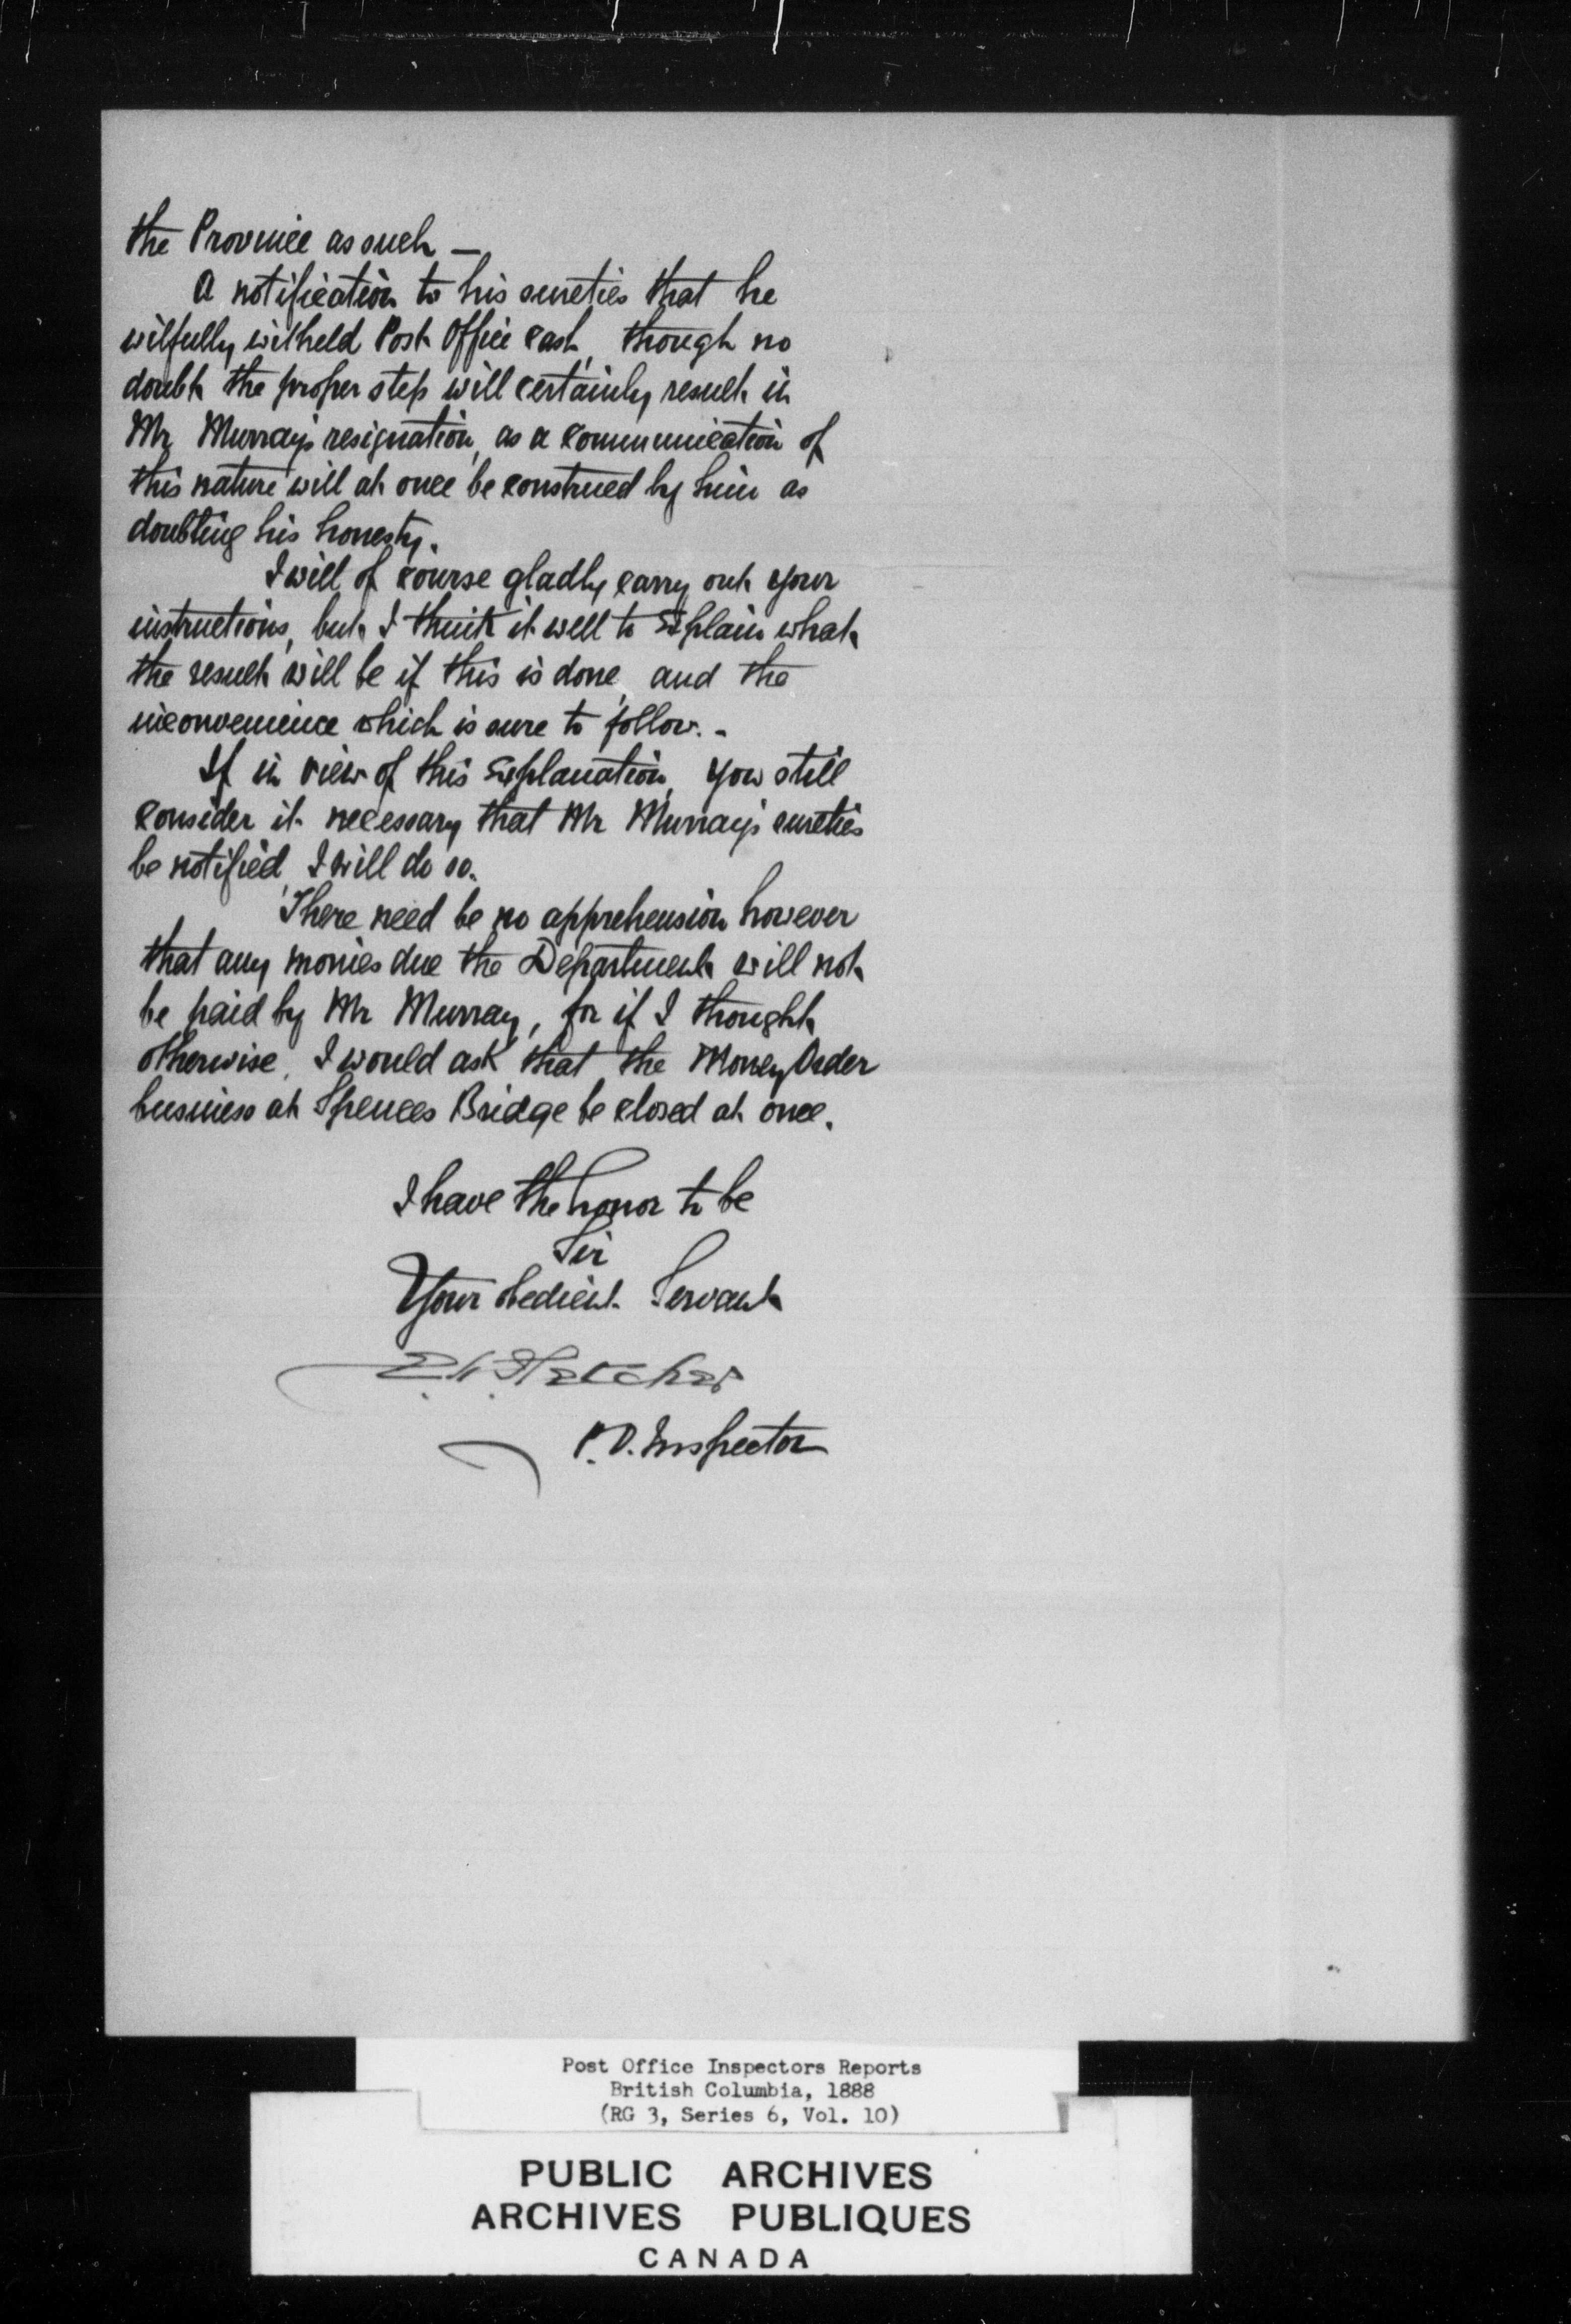 the Province as such —
A notification to his sureties that he
wilfully witheld Post Office cash, though no
doubt the proper step will certainly result in
Mr Murray's resignation, as a communication of
this nature will at once be construed by him as
doubting his honesty.
I will of course gladly carry out your
instructions, but I think it well to explain what
the result will be if this is done, and the
inconvenience which is sure to follow. -
If in view of this explanation, you still
consider it necessary that Mr Murray's sureties
be notified, I will do so.
There need be no apprehension however
that any monies due the Department will not
be paid by Mr Murray, for if I thought
otherwise, I would ask that the Money Order
business at Spences Bridge be closed at once.
I have the honor to be
Sir
Your obedient Servant
E.H. Fletcher
P.O. Inspector
Post Office Inspectors Reports
British Columbia, 1888
(RG 3, Series 6, Vol. 10)
PUBLIC ARCHIVES
ARCHIVES PUBLIQUES
CANADA